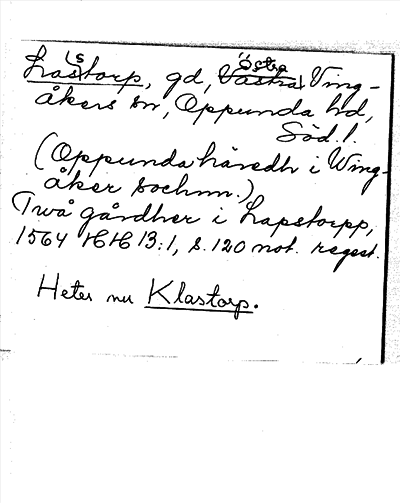 Las(s)torp, gd, Östra Ving-
åkers sn, Oppunda hd,
Söd. l.
(Oppunda häredh i Wing-
åker sochnn.)
Twå gårdher i Lapstorpp,
1564 HH 13:1, s. 120 not. regest.
Heter nu Klastorp.